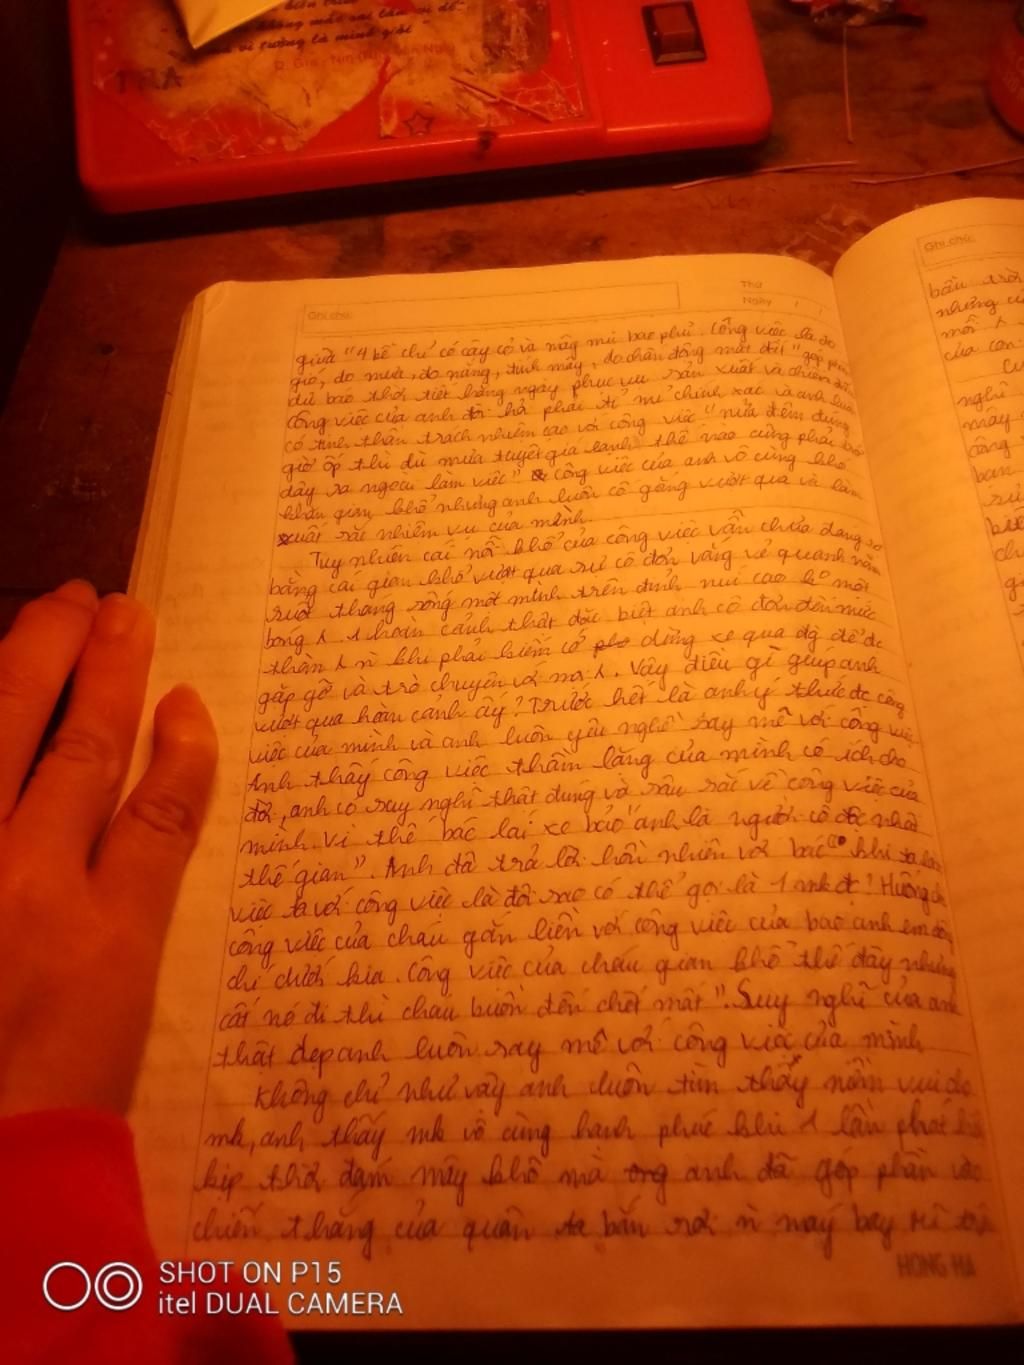 vì tưởng là mình giỏi"
Ghi chú:
Thứ
Ngày
giữa "4 bề chỉ có cây cỏ và mây mù bao phủ. Công việc là đo
gió, đo mưa, đo nắng, tính mây, đo chấn động mặt đất" góp phần
dự báo thời tiết hàng ngày phục vụ sản xuất và chiến đấu
công việc của anh đòi hỏi phải tỉ mỉ chính xác và anh luôn
có tinh thần trách nhiệm cao với công việc "nửa đêm đúng
giờ ốp thì dù mưa tuyết giá lạnh thế nào cũng phải trở
dậy ra ngoài làm việc" công việc của anh vô cùng khó
khăn gian khổ nhưng anh luôn cố gắng vượt qua và làm
xuất sắc nhiệm vụ của mình.
Tuy nhiên cái nỗi khổ của công việc vẫn chưa đáng sợ
bằng cái gian khổ vượt qua sự cô đơn vắng vẻ quanh năm
suốt tháng sống một mình trên đỉnh núi cao ko một
bóng 1 hoàn cảnh thật đặc biệt anh cô đơn đến mức
thèm n khi phải kiếm cớ dừng xe qua đg để đc
gặp gỡ và trò chuyện với mọi . Vậy điều gì giúp anh
vượt qua hoàn cảnh ấy? Trước hết là anh ý thức đc công
việc của mình và anh luôn yêu nghề say mê với công việc
Anh thấy công việc thầm lặng của mình có ích cho
đời, anh có suy nghĩ thật đúng và sâu sắc về công việc của
mình. Vì thế bác lái xe bảo "anh là người cô độc nhất
thế gian". Anh đã trả lời hồn nhiên với bác " khi ta làm
việc ta với công việc là đôi sao có thể gọi là 1 mk đc? Huống chi
công việc của cháu gắn liền với công việc của bao anh em đồng
chí dưới kia. Công việc của cháu gian khổ thế đấy nhưng
cất nó đi thì cháu buồn đến chết mất". Suy nghĩ của anh
thật đẹp anh luôn say mê với công việc của mình
Không chỉ như vậy anh luôn tìm thấy niềm vui cho
mk, anh thấy mk vô cùng hạnh phúc khi 1 lần phát hiện
kịp thời đám mây khô mà anh đã góp phần vào
chiến thắng của quân ta bắn rơi n máy bay
HONG HA
Ghi chú:
bầu trời
những
mỗi 1
của con
nghĩ
mây
công
bạn
SHOT ON P15
itel DUAL CAMERA